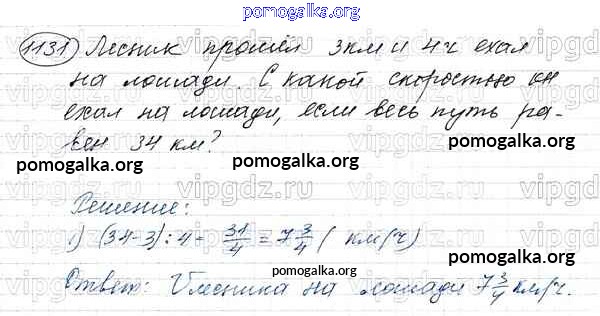 pomogalka.org
1131) Лесник прошёл 3км и 4ч ехал
на лошади. С какой скоростью он
ехал на лошади, если весь путь ра-
вен 34 км?
pomogalka.org pomogalka.org pomogalka.org
vipgdz.ru vipgdz.ru
Решение:
1) (34-3):4= 31/4 = 7 3/4 (км/ч)
pomogalka.org
Ответ: V лесника на лошади 7 3/4 км/ч.
pomogalka.org